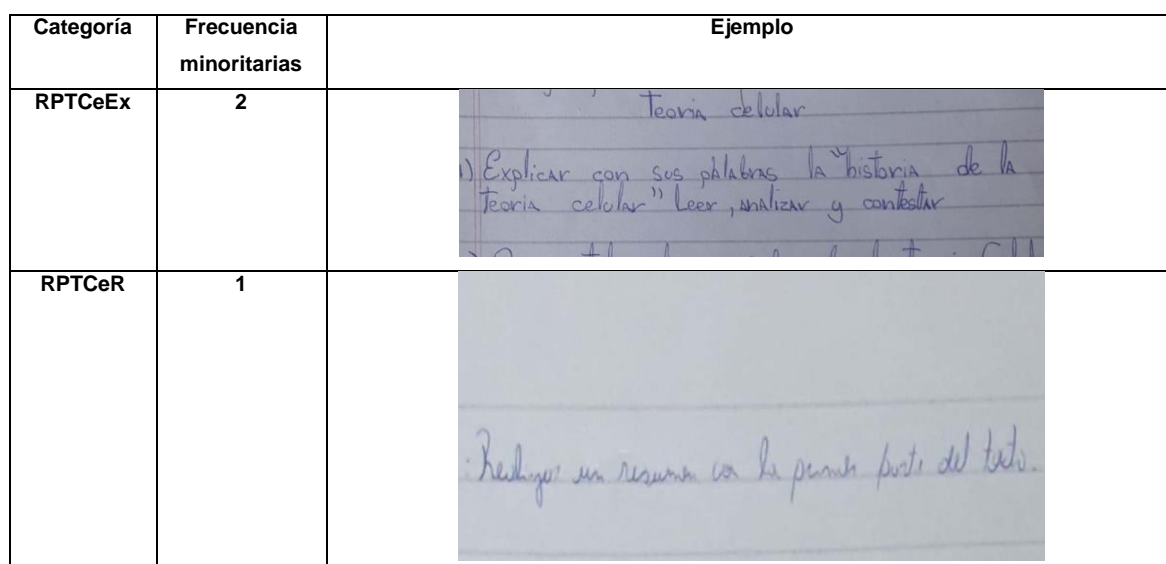 Categoría Frecuencia minoritarias Ejemplo
RPTCeEx 2
Teoria celular
1) Explicar con sus palabras la "historia de la
Teoria celular" Leer, analizar y contestar
RPTCeR 1
un resumen con la primera parte del texto.